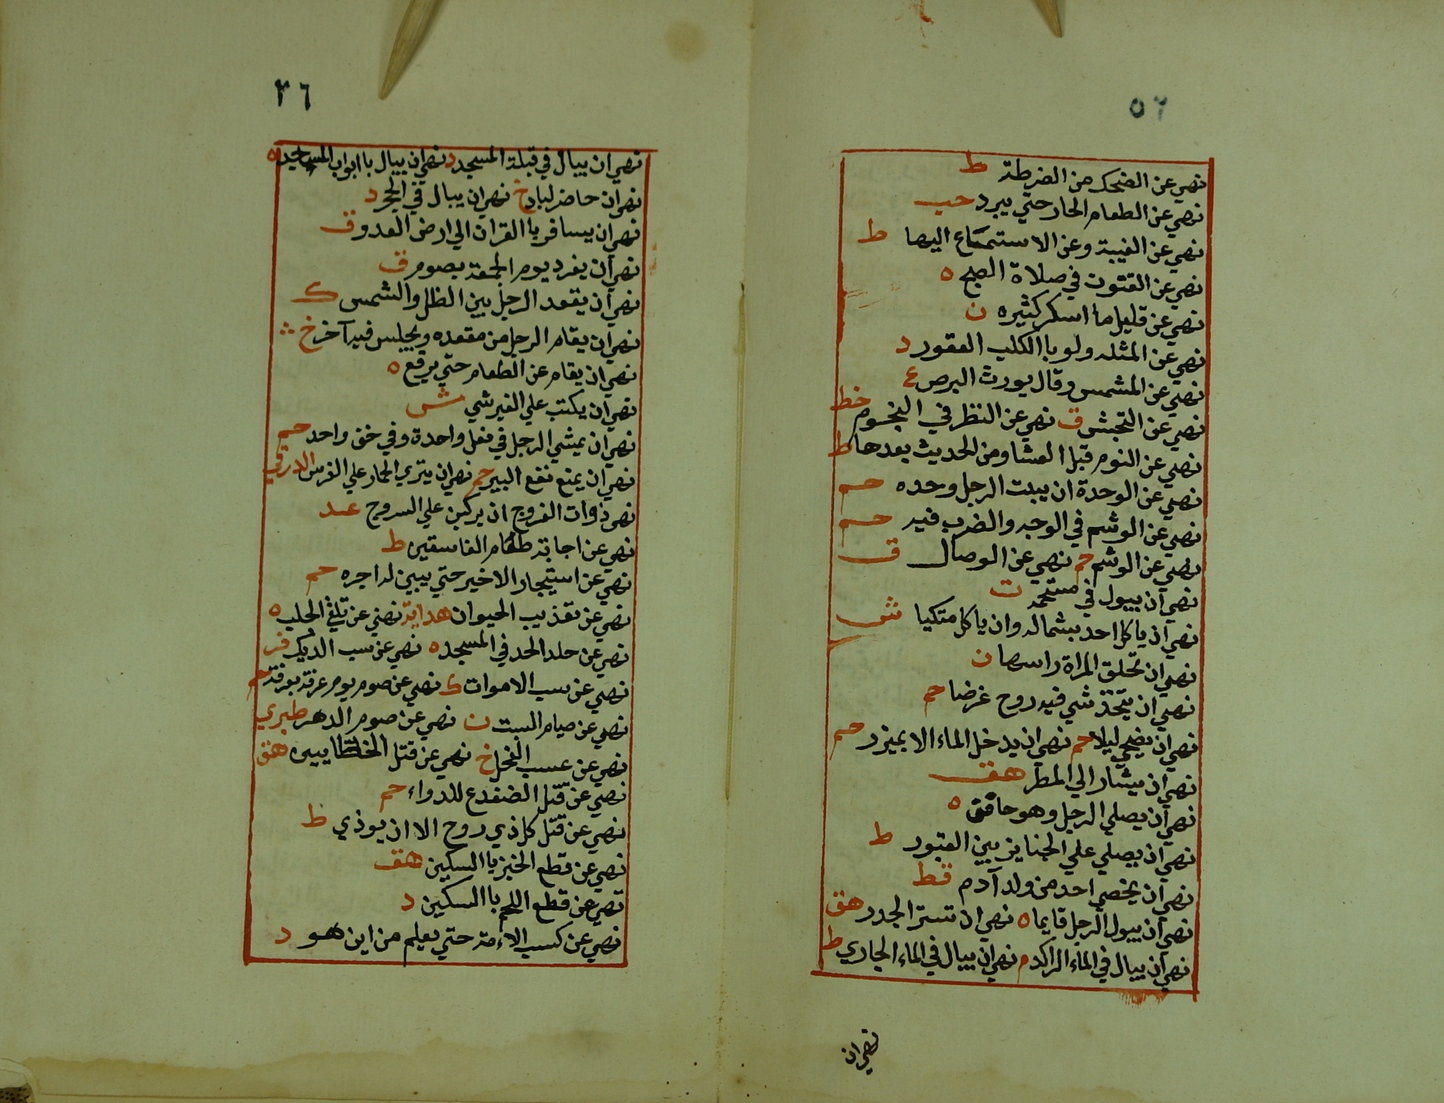 ٥٢
نهي عن الضحك من الضرطة ط
نهي عن الطعام الحار حتي يبرد حب
نهي عن الغيبة وعن الاستمتاع اليها ط
نهي عن القنوت في صلاة الصبح ه
نهي عن قليل ما اسكر كثيره ن
نهي عن المثله ولو باالكلب العقور د
نهي عن المشمس وقال يورث البرص ع
نهي عن التجشي ق نهي عن النظر في النجوم خط
نهي عن النوم قبل العشا ومن الحديث بعدها ط
نهي عن الوحدة ان يبيت الرجل وحده حم
نهي عن الوشم في الوجه والضرب فيه حم
نهي عن الوشم حم نهي عن الوصال ق
نهي ان يبول في مستحمه ت
نهي ان ياكل احد بشماله وان ياكل متكيا ش
نهي ان تحلق المراة راسها ن
نهي ان يتخذ شي فيه روح غرضا حم
نهي ان يضحي ليلا حم نهي ان يدخل الماء الا بميزر حم
نهي ان يشار الي المطر هق
نهي ان يصلي الرجل وهو حاقق ه
نهي ان يصلي علي الجنايز بين القبور ط
نهي ان يخصي احد من ولد آدم قط
نهي ان يبول الرجل قايما ه نهي ان تستر الجدر هق
نهي ان يبال في الماء الراكد م نهي ان يبال في الماء الجاري ط
نهي ان
٣٦
نهي ان يبال في قبلة المسجد د نهي ان يبال باابواب المساجد ه
نهي ان حاضر لباد خ نهي ان يبال في الجحر د
نهي ان يسافر باالقران الي ارض العدو ق
نهي ان يفرد يوم الجمعة بصوم ق
نهي ان يقعد الرجل بين الظل والشمس ك
نهي ان يقام الرجل من مقعده ويجلس فيه آخر خ
نهي ان يقام عن الطعام حتي يرفع ه
نهي ان يكتب علي القبر شي ش
نهي ان يمشي الرجل في نعل واحدة وفي خف واحد حم
نهي ان يمنع نقع البير حم نهي ان ينزي الحمار علي الفرس
نهي ذوات الفروج ان يركبن علي السروج عد
نهي عن اجابة طعام الفاسقين ط
نهي عن استيجار الاخير حتي يبين له اجره حم
نهي عن تعذيب الحيوان هداية نهي عن تلقي الجلب ه
نهي عن جلد الحد في المسجد ه نهي عن سب الديك فر
نهي عن سب الاموات ك نهي عن صوم يوم عرفة بعرفة حم
نهي عن صيام السبت ن نهي عن صوم الدهر طبري
نهي عن عسب الفحل خ نهي عن قتل هق
نهي عن قتل الضفدع للدواء حم
نهي عن قتل كل ذي روح الا ان يوذي ط
نهي عن قطع الخبز باالسكين هق
نهي عن قطع اللحم باالسكين د
نهي عن كسب الامة حتي يعلم من اين هو د